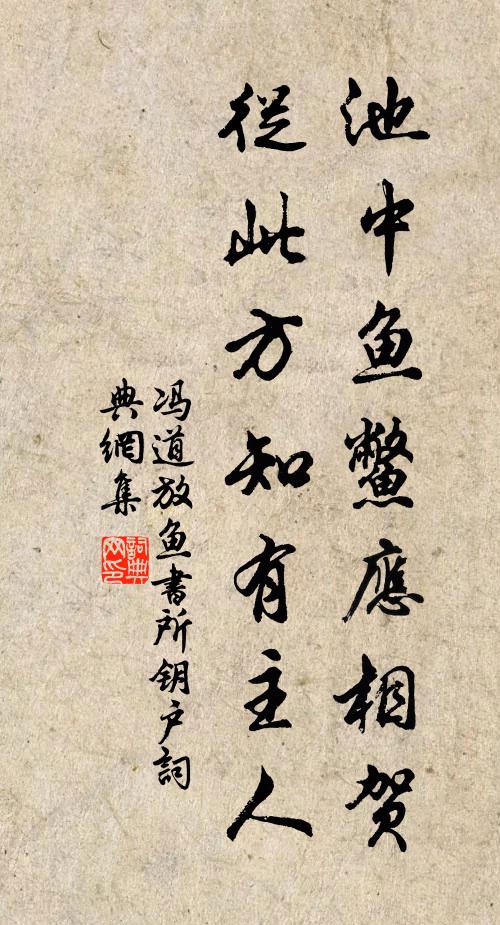 池中鱼鳖應相贺
從此方知有主人
冯道放鱼書所钥户詞
典網集
詞典网印